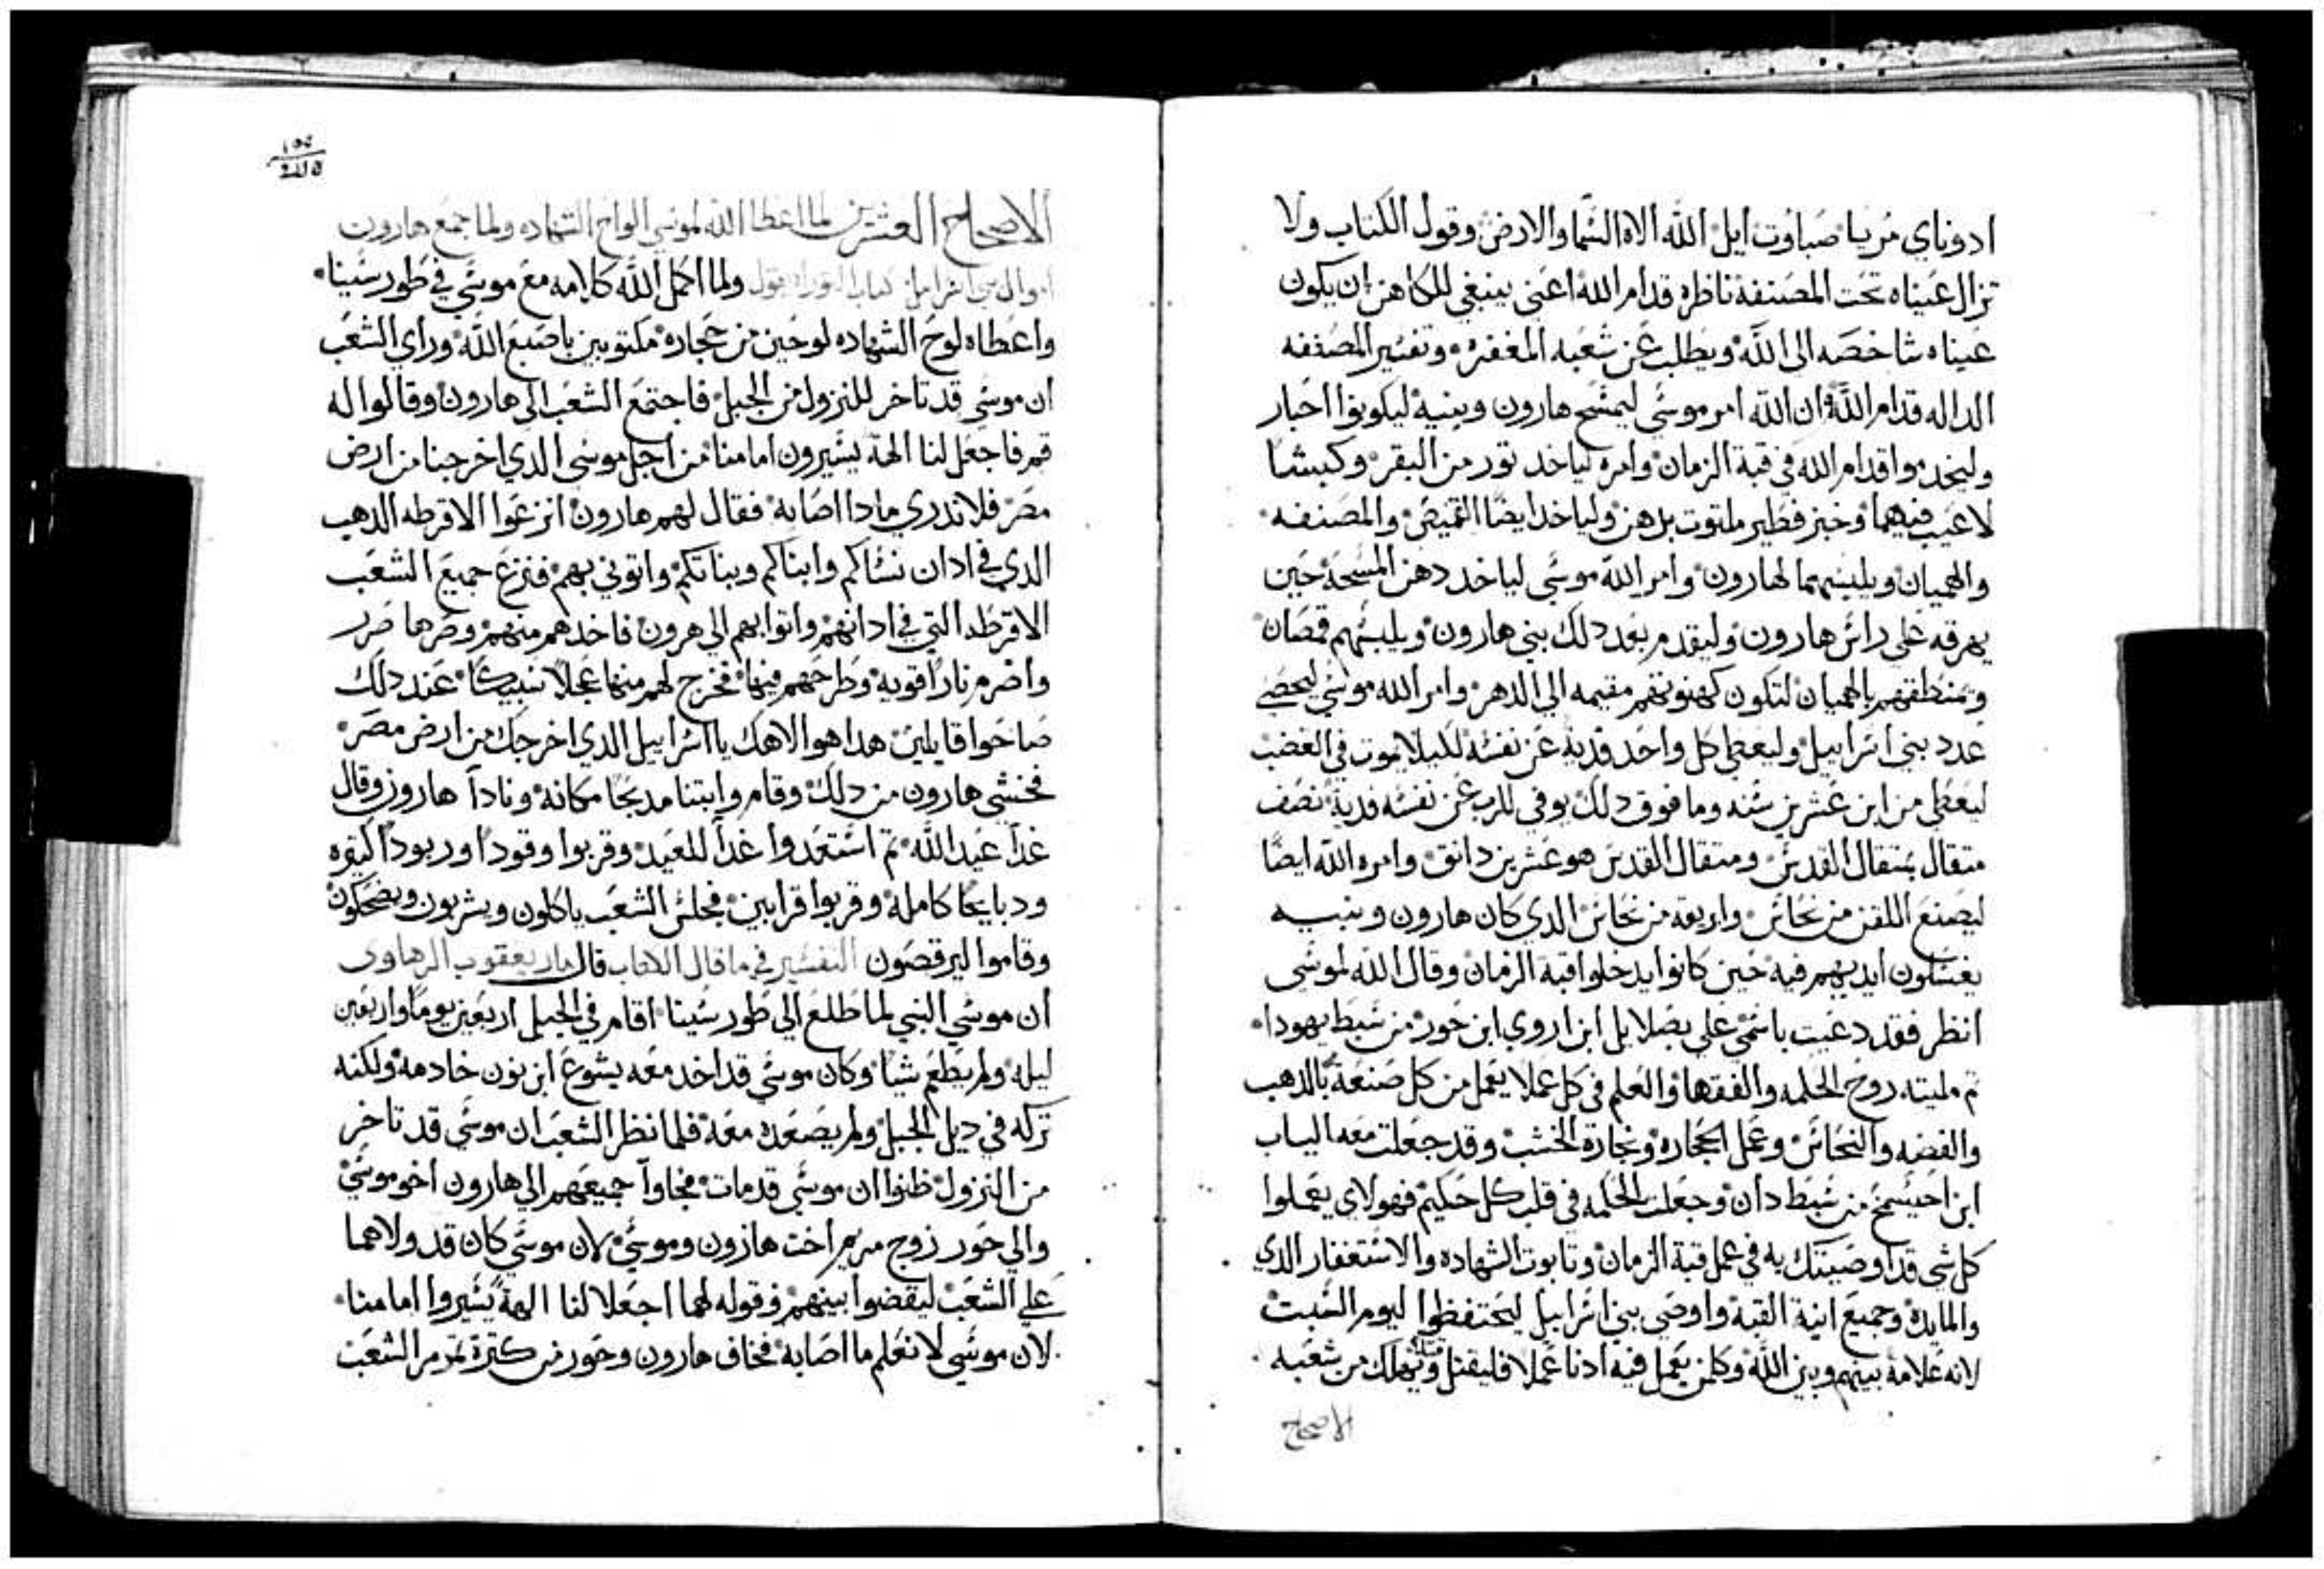 ادوناي مريا صباوت ايل الله الاه السما والارض وقول الكتاب ولا
تزال عيناه تحت المصنفة ناظره قدام الله اعني ينبغي للكاهن ان يكون
عيناه شاخصه الى الله ويطلب عن شعبه المغفره وتفسير المصنفه
الداله قدام الله ان الله امر موسى ليمسح هارون وبنيه ليكونوا احبار
وليخدموا قدام الله في قبة الزمان وامره لياخد تور من البقر وكبشا
لا عيب فيهما وخبز فطير ملتوت بدهن ولياخد ايضا القميص والمصنفه
والهميان ويلبسهما لهارون وامر الله موسى لياخد دهن المسحة حين
يهرقه على راس هارون وليقدم بعد دلك بني هارون ويلبسهم قمصان
ويمنطقهم بالهميان لتكون كهنوتهم مقيمه الي الدهر وامر الله موسى ليحصي
عدد بني اسراييل وليعطي كل واحد فدية عن نفسه لكيلا يموت في الغضب
ليعطي من ابن عشرين سنه وما فوق دلك يوفي للرب عن نفسه فدية نصف
متقال بمتقال القدس ومتقال القدس هو عشرين دانق وامره الله ايضا
ليصنع اللقن من نحاس واربعه من نحاس الدي كان هارون وبنيه
يغسلون ايديهم فيه حين كانوا يدخلوا قبة الزمان وقال الله لموسى
انظر فقد دعيت باسمي على بصلايل ابن اروي ابن حور من سبط يهودا
تم مليته روح الحكمه والفقها والعلم في كل عملا يعمل من كل صنعة بالدهب
والفضه والنحاس وعمل الحجاره ونجارة الخشب وقد جعلت معه الياب
ابن احيسمخ من سبط دان وجعلت الحكمه في قلب كل حكيم فهولاي يعملوا
كل شي قد اوصيتك به في عمل قبة الزمان وتابوت الشهاده والاستغفار الدي
والمايده وجميع انية القبه واوصى بني اسراييل ليحتفظوا ليوم السبت
لانه علامة بينهم وبين الله وكلمن يعمل فيه ادنا عملا فليقتل ويهلك من شعبه
الاصحاح
الاصحاح العشرين لما اعطا الله لموسي الواح الشهاده ولما جمع هارون
اموال بني اسراييل كتاب التوراه يقول ولما اكمل الله كلامه مع موسى في طور سينا
واعطاه لوح الشهاده لوحين من حجاره مكتوبين باصبع الله وراي الشعب
ان موسى قد تاخر للنزول من الجبل فاجتمع الشعب الى هارون وقالوا له
قم فاجعل لنا الهة يسيرون امامنا من اجل موسى الدي اخرجنا من ارض
مصر فلا ندري مادا اصابه فقال لهم هارون انزعوا الاقرطه الدهب
الدي في ادان نساكم وابناكم وبناتكم واتوني بهم فنزع جميع الشعب
الاقرطه التي في ادانهم واتوا بهم الي هرون فاخدهم منهم وصرها صرر
واضرم نارا قويه وطرحهم فيها فخرج لهم منها عجلا سبيكا عند دلك
صاحوا قايلين هدا هو الاهك يا اسراييل الدي اخرجك من ارض مصر
فخشي هارون من دلك وقام وابتنا مدبحا مكانه ونادا هارون وقال
غدا عيد الله تم استعدوا غدا للعيد وقربوا وقودا وربودا كتيره
ودبايحا كاملة وقربوا قرابين فجلس الشعب ياكلون ويشربون ويضحكون
وقاموا ليرقصون التفسير في ما قال الكتاب قال مار يعقوب الرهاوى
ان موسى النبي لما طلع الي طور سينا اقام في الجبل اربعين يوما واربعين
ليله ولم يطعم شيا وكان موسى قد اخد معه يشوع ابن نون خادمه ولكنه
تركه في ديل الجبل ولم يصعده معه فلما نظر الشعب ان موسى قد تاخر
من النزول ظنوا ان موسى قد مات فجاوا جميعهم الي هارون اخو موسى
والي حور زوج مريم اخت هارون وموسى لان موسى كان قد ولاهما
علي الشعب ليقضوا بينهم وقوله لهما اجعلا لنا الهة يسيروا امامنا
لان موسى لا نعلم ما اصابه فخاف هارون وحور من كترة تمرمر الشعب